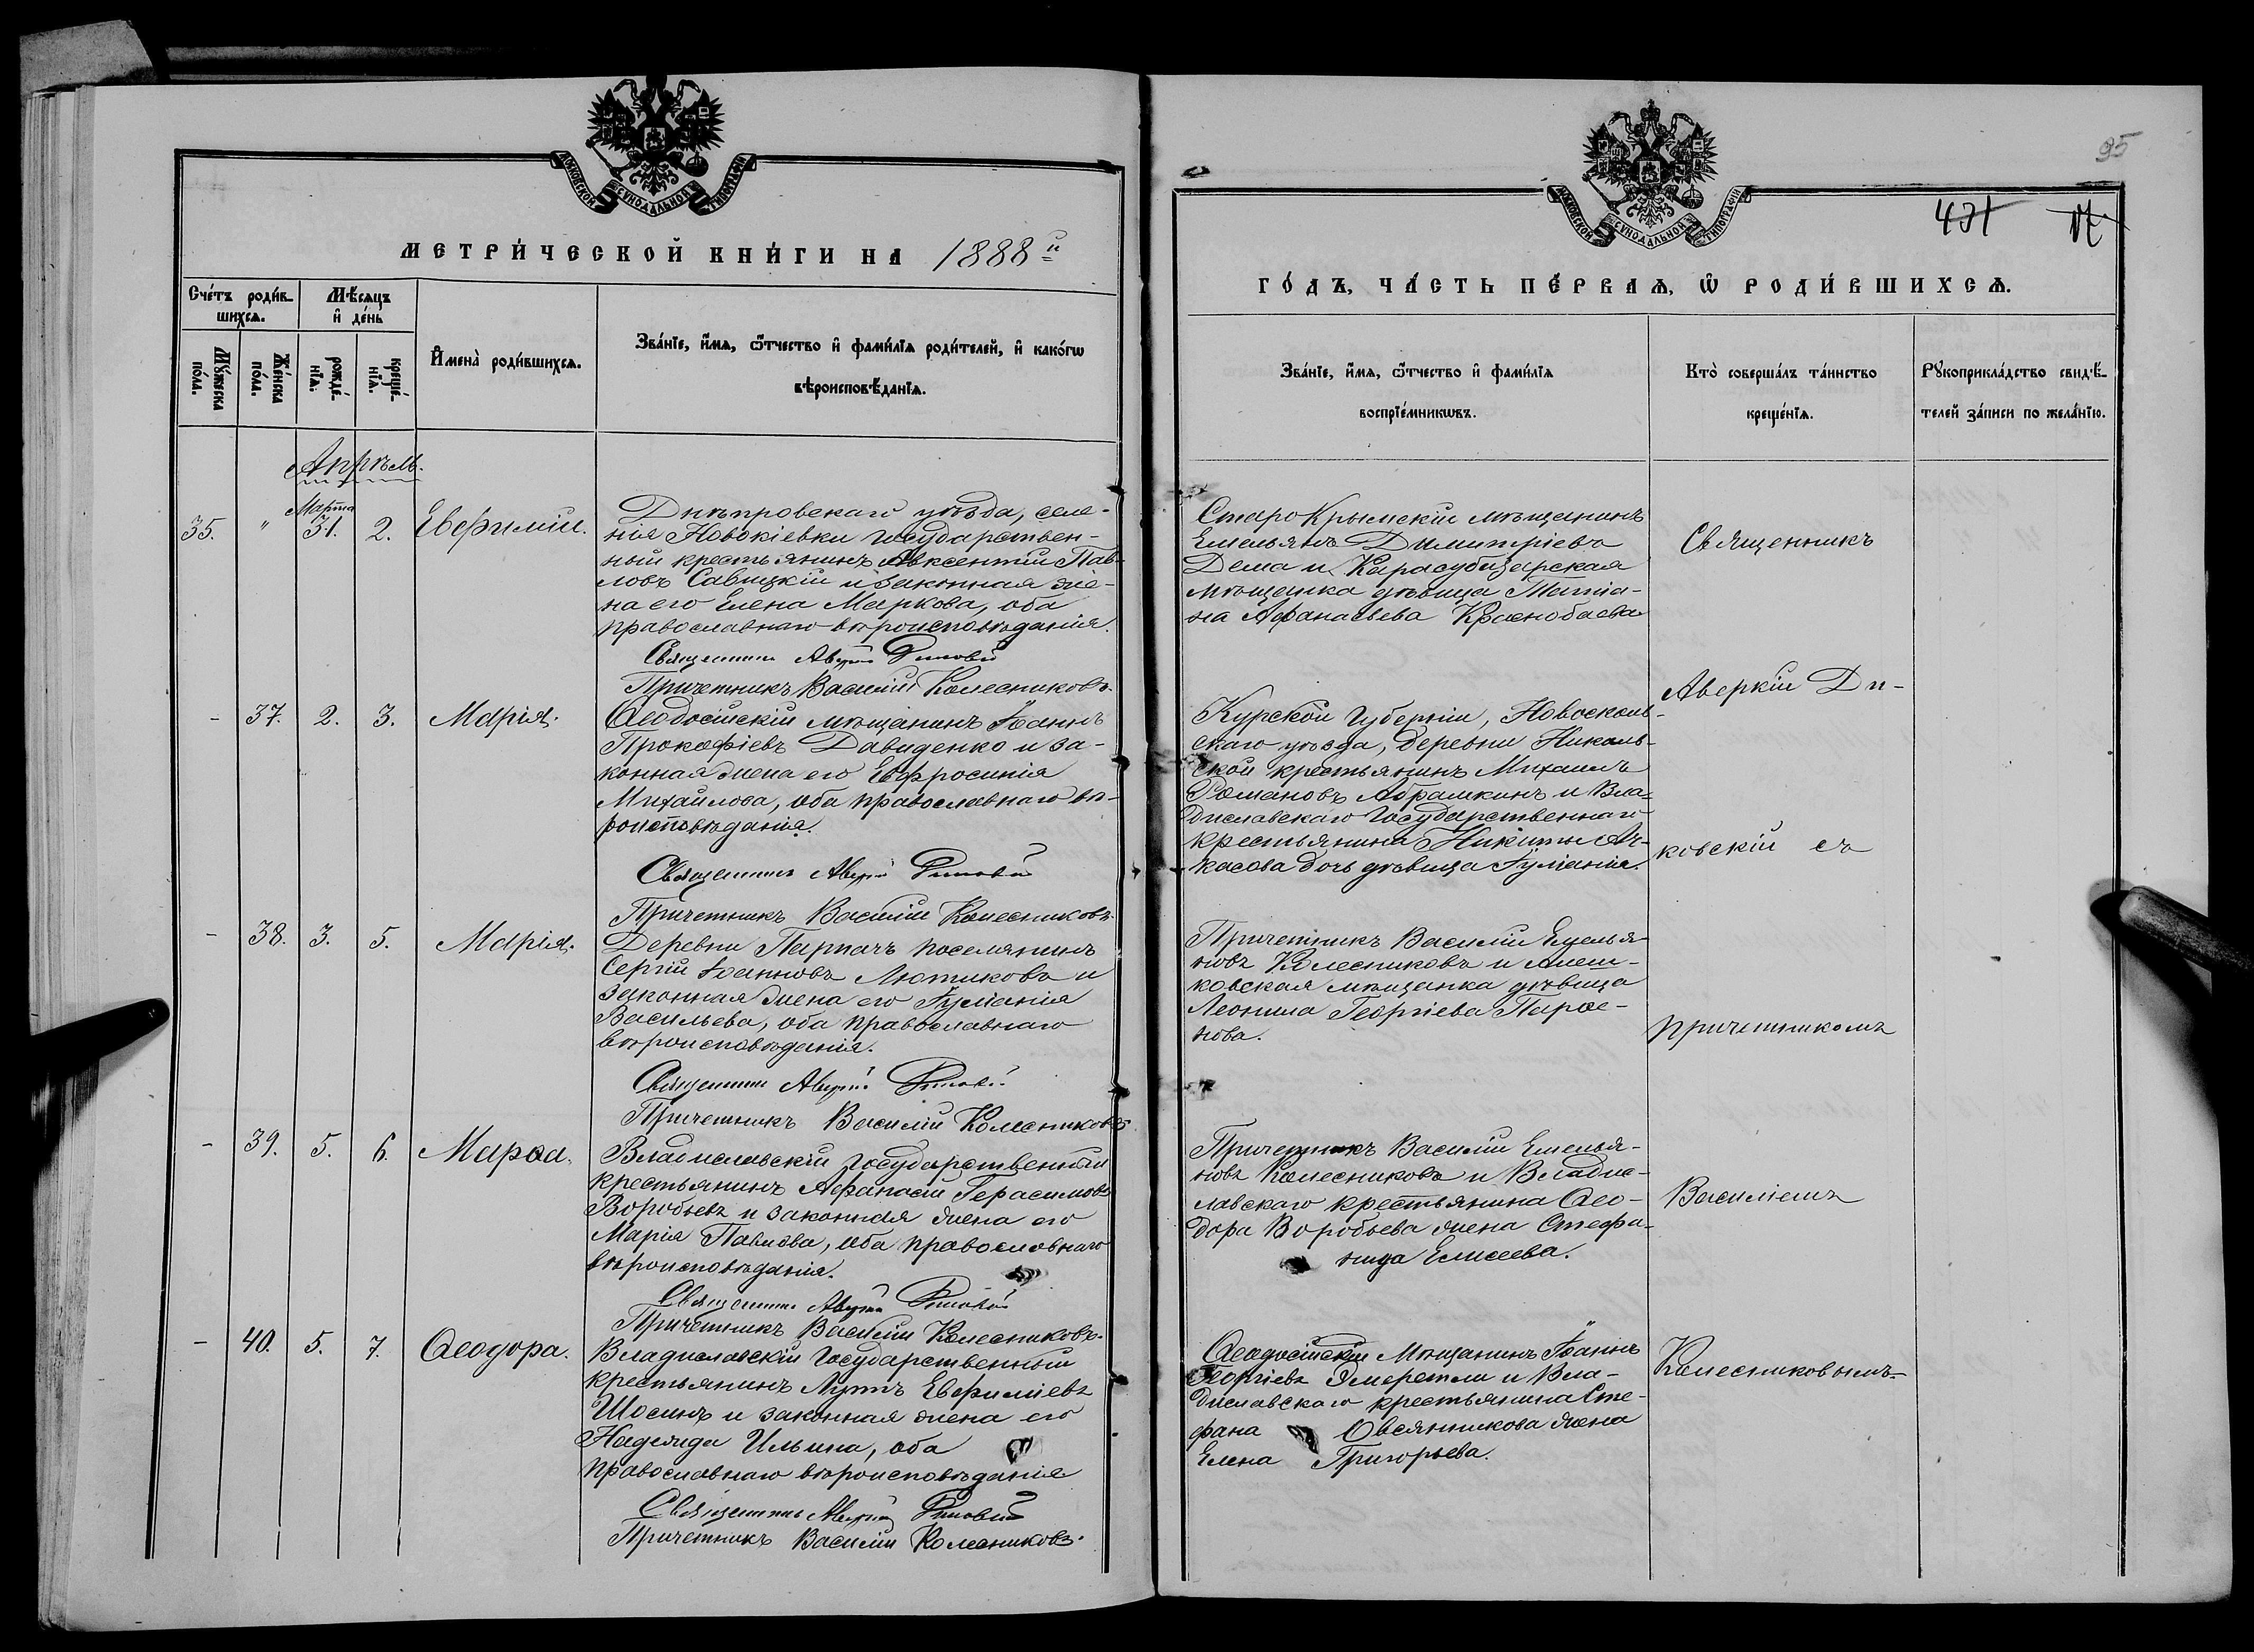 95
431 17
МОСКОВСКОЙ СѴНОДАЛЬНОЙ ТИПОГРАФІИ
МОСКОВСКОЙ СѴНОДАЛЬНОЙ ТИПОГРАФІИ
МЕТРИ́ЧЕСКОЙ КНИ́ГИ НА 1888й
ГО́ДЪ, ЧА́СТЬ ПЕ́РВАѦ, Ѡ҆ РОДИ́ВШИХСѦ.
Сче́тъ роди́в-
шихсѧ.
Мѣ́сѧцъ
и҆ де́нь
Мꙋ́жеска
по́ла.
Же́нска
по́ла.
рожде́-
нїѧ.
креще́-
нїѧ.
И҆мена̀ роди́вшихсѧ.
Зва́нїе, и҆́мѧ, ѻ҆́тчество и҆ фами́лїѧ роди́телей, и҆ како́гѡ
вѣроисповѣ́данїѧ.
Зва́нїе, и҆́мѧ, ѻ҆́тчество и҆ фами́лїѧ
воспрїе́мникѡвъ.
Кто̀ соверша́лъ та́инство
креще́нїѧ.
Рꙋкоприкла́дство свидѣ́-
телей за́писи по жела́нїю.
Апрѣль.
Марта
35. " 31. 2. Евфимій.
Днѣпровскаго уѣзда, селе-
нія Новокіевки государствен-
ный крестьянинъ Авксентій Пав-
ловъ Савицкій и законная же-
на его Елена Маркова, оба
православнаго вѣроисповѣданія.
Священникъ Аверкій Дриновскій
Причетникъ Василій Колесниковъ.
СтароКрымскій мѣщанинъ
Емельянъ Димитріевъ
Дема и Карасубазарская
мѣщанка дѣвица Татіа-
на Афанасьева Краснобаева
Священникъ
- 37. 2. 3. Марія.
Ѳеодосійскій мѣщанинъ Іоаннъ
Прокофіевъ Давиденко и за-
конная жена его Евфросинія
Михайлова, оба православнаго вѣ-
роисповѣданія.
Священникъ Аверкій
Причетникъ Василій Колесниковъ.
Курской губерніи, Новосколь-
скаго уѣзда, деревни Николь-
ской крестьянинъ Михаилъ
Романовъ Абрамкинъ и Вла-
диславскаго Государственнаго
крестьянина Никиты Ач-
касова дочь дѣвица Іуліанія.
Аверкій Ди-
ковскій съ
- 38. 3. 5. Марія.
Деревни Парпачъ поселянинъ
Сергій Іоанновъ Лютиковъ и
законная жена его Іуліанія
Васильева, оба православнаго
вѣроисповѣданія.
Священникъ Аверкій
Причетникъ Василій Колесниковъ
Причетникъ Василій Емелья-
новъ Колесниковъ и Алеш-
ковская мѣщанка дѣвица
Леонила Георгіева Парое-
нова.
причетникомъ
- 39. 5. 6. Марѳа.
Владиславскій государственный
крестьянинъ Афанасій Герасимовъ
Воробьевъ и законная жена его
Марія Павлова, оба православнаго
вѣроисповѣданія.
Священникъ Аверкій
Причетникъ Василій Колесниковъ.
Причетникъ Василій Емелья-
новъ Колесниковъ и Владис-
лавскаго крестьянина Ѳео-
дора Воробьева жена Стефа-
нида Елисеева.
Василіемъ
- 40. 5. 7. Ѳеодора.
Владиславскій Государственный
крестьянинъ Луппъ Евфиміевъ
Шосинъ и законная жена его
Надежда Ильина, оба
православнаго вѣроисповѣданія
Священникъ Аверкій
Причетникъ Василій Колесниковъ.
Ѳеодосійскій Мѣщанинъ Іоаннъ
Георгіевъ Эмеретли и Вла-
диславскаго крестьянина Сте-
фана Овсянникова жена
Елена Григорьева.
Колесниковымъ.